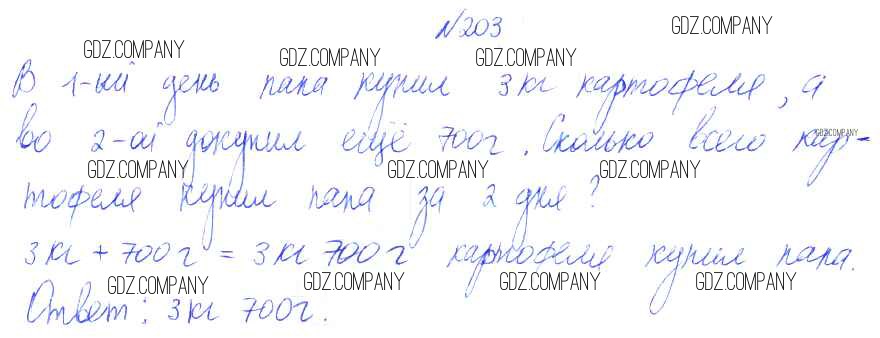 №203
GDZ.COMPANY GDZ.COMPANY GDZ.COMPANY GDZ.COMPANY
В 1-ый день папа купил 3кг картофеля, а
во 2-ой докупил ещё 700г. Сколько всего кар-
GDZ.COMPANY
GDZ.COMPANY GDZ.COMPANY GDZ.COMPANY
тофеля купил папа за 2 дня?
3кг + 700г = 3кг 700г картофеля купил папа.
GDZ.COMPANY GDZ.COMPANY GDZ.COMPANY GDZ.COMPANY
Ответ: 3кг 700г.